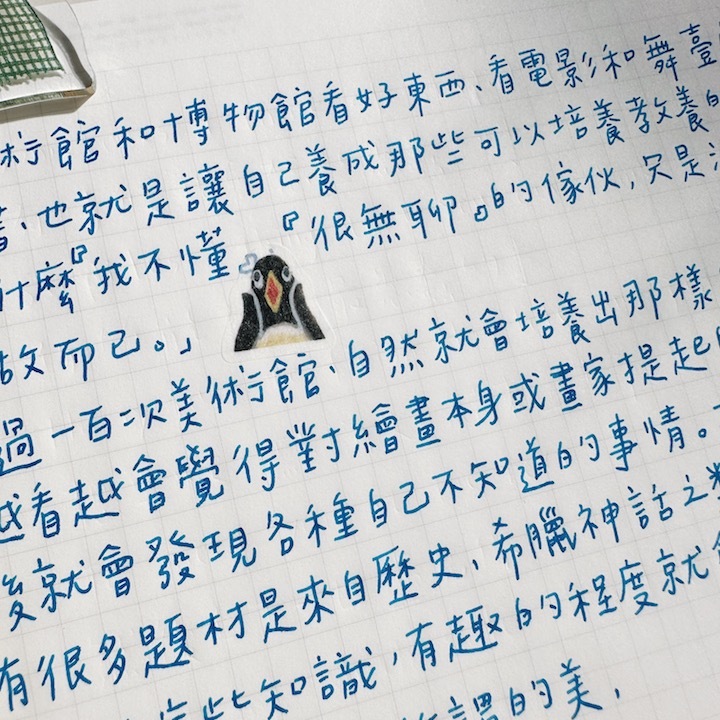 術館和博物館看好東西、看電影和舞臺
書、也就是讓自己養成那些可以培養教養的
什麼『我不懂』『很無聊』的傢伙，只是沒
故而已。」
過一百次美術館、自然就會培養出那樣
越看越會覺得對繪畫本身或畫家提起
後就會發現各種自己不知道的事情。
有很多題材是來自歷史、希臘神話之類
這些知識，有趣的程度就會
的美，